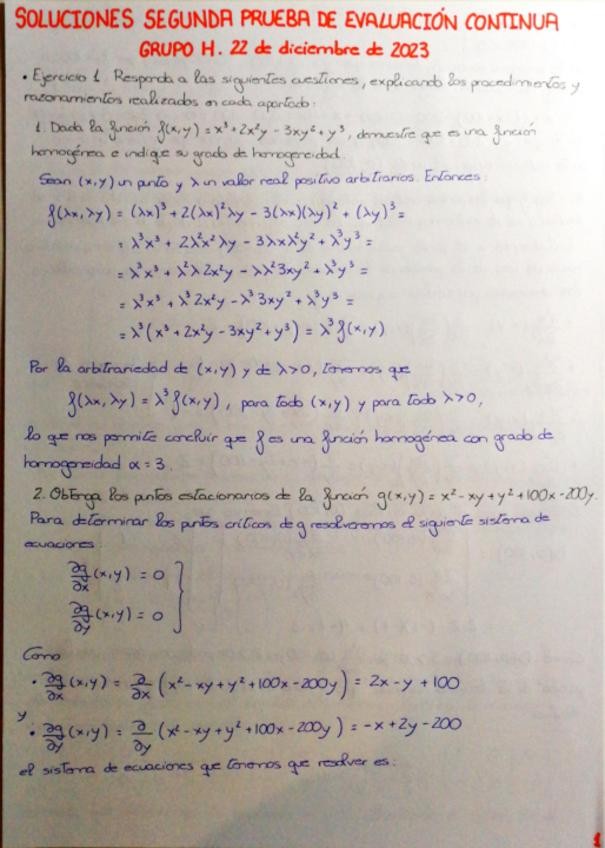 SOLUCIONES SEGUNDA PRUEBA DE EVALUACIÓN CONTINUA
GRUPO H. 22 de diciembre de 2023
• Ejercicio 1. Responda a las siguientes cuestiones, explicando los procedimientos y
razonamientos realizados en cada apartado:
1. Dada la función f(x,y) = x³+2x²y - 3xy²+y³, demuestre que es una función
homogénea e indique su grado de homogeneidad.
Sean (x,y) un punto y λ un valor real positivo arbitrarios. Entonces:
f(λx, λy) = (λx)³ + 2(λx)²λy - 3(λx)(λy)² + (λy)³ =
= λ³x³ + 2λ²x²λy - 3λxλ²y² + λ³y³ =
= λ³x³ + λ²λ2x²y - λλ²3xy² + λ³y³ =
= λ³x³ + λ³2x²y - λ³3xy² + λ³y³ =
= λ³(x³ + 2x²y - 3xy² + y³) = λ³f(x,y)
Por la arbitrariedad de (x,y) y de λ>0, tenemos que
f(λx, λy) = λ³f(x,y), para todo (x,y) y para todo λ>0,
lo que nos permite concluir que f es una función homogénea con grado de
homogeneidad α = 3.
2. Obtenga los puntos estacionarios de la función g(x,y) = x²-xy+y²+100x-200y.
Para determinar los puntos críticos de g resolveremos el siguiente sistema de
ecuaciones:
∂g/∂x (x,y) = 0
∂g/∂y (x,y) = 0 }
Como
• ∂g/∂x (x,y) = ∂/∂x (x²-xy+y²+100x-200y) = 2x-y+100
y
• ∂g/∂y (x,y) = ∂/∂y (x²-xy+y²+100x-200y) = -x+2y-200
el sistema de ecuaciones que tenemos que resolver es:
1